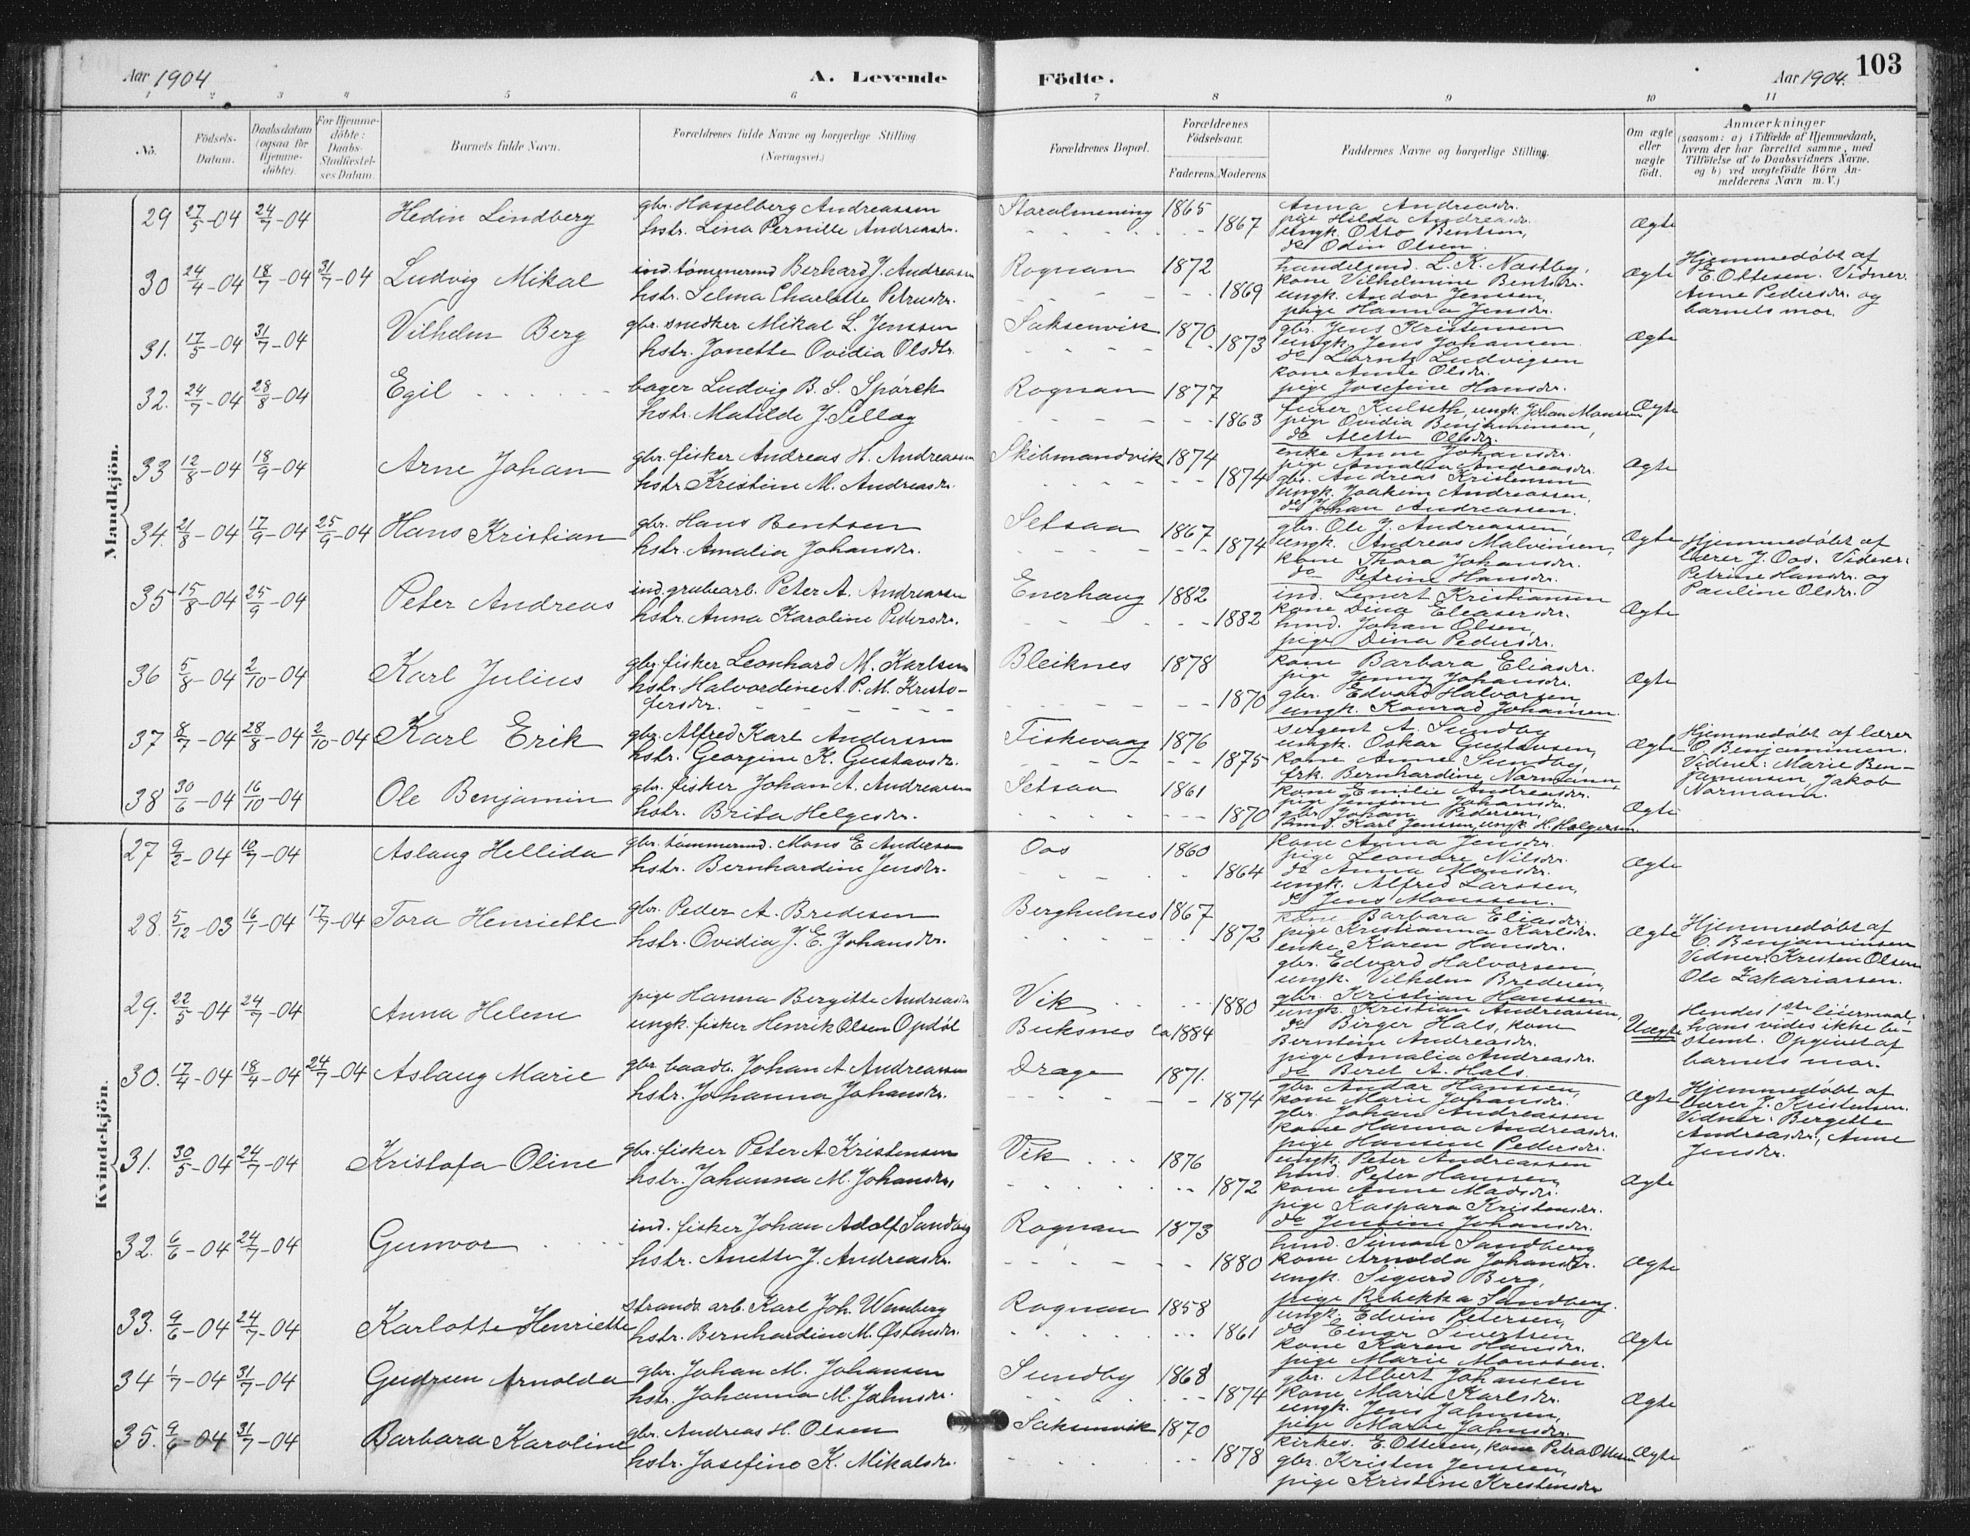 Aar 1904
A. Levende
Födte.
Aar 1904.
103
1 2 3 4 5 6 7 8 9 10 11
No.
Födsels-
Datum.
Daabsdatum
(ogsaa for
Hjemme-
döbte).
For Hjemme-
döbte:
Daabs-
Stadfæstel-
ses Datum.
Barnets fulde Navn.
Forældrenes fulde Navne og borgerlige Stilling
(Næringsvei.)
Forældrenes Bopæl.
Forældrenes
Födselsaar.
Faderens. Moderens.
Faddernes Navne og borgerlige Stilling.
Om ægte
eller
uægte
födt.
Anmærkninger
(saasom: a) i Tilfælde af Hjemmedaab,
hvem der har forrettet samme, med
Tilföielse af to Daabsvidners Navne.
og b) ved uægtefödte Börn An-
melderens Navn m. V.)
Mandkjön.
29 27/5-04 24/7-04 Hedin Lindberg
gbr. Hasselberg Andreassen
hstr. Lina Pernille Andreasdr.
Storalmening 1865
1867
Anna Andreasdr.
pige Hilda Andreasdr.
ungk. Otto Bentsen,
do Odin Olsen.
Ægte
30 24/4-04 18/7-04 31/7-04 Ludvig Mikal
ind. tömmermd Berhard J. Andreassen
hstr. Selma Charlotte Petrusdr.
Rognan 1872
1869
handelsmd. L. K. Næstby,
kone Vilhelmine Bentsdr.
ungk. Andor Jenssen,
pige Hanna Jensdr.
Ægte
Hjemmedøbt af
E. Ottesen. Vidner:
Anne Pedersdr. og
barnets mor.
31. 17/5-04 31/7-04 Vilhelm Berg
gbr. snedker Mikal L. Jenssen
hstr. Jonette Ovidia Olsdtr.
Saksenvik 1870
1873
gbr. Jens Kristensen
ungk. Jens Johansen.
do Lorntz Ludvigsen
kone Anne Olsdr.
pige Josefine Hansdr.
Ægte
32. 24/7-04 28/8-04 Egil
bager Ludvig B. S. Spörck
hstr. Matilde J. Selläg
Rognan 1877
1863
furer Kulseth, ungk. Johan Monssen
pige Ovidia Benjaminsen,
do Alette Olsdr.
Ægte
33 12/8-04 18/9-04 Arne Johan
gbr. fisker Andreas H. Andreassen
hstr. Kristine M. Andreasdr.
Skibmandvik 1874
1874
enke Anne Johansdr.
pige Amalia Andreasdr.
gbr. Andreas Kristensen
ungk. Joakim Andreassen,
do Johan Andreassen.
Ægte
34. 21/8-04 17/9-04 25/9-04 Hans Kristian
gbr. Hans Bentsen
hstr. Amalia Johansdr.
Setsaa 1867
1874
gbr. Ole J. Andreassen
ungk. Andreas Malvinsen,
kone Thora Johansdr.
do Petrine Hansdr.
Ægte
Hjemmedøbt af
lærer J. Oos. Vidner:
Petrine Hansdr. og
Pauline Olsdr.
35 15/8-04 25/9-04 Peter Andreas
ind. grubearb. Peter A. Andreassen
hstr. Anna Karoline Pedersdr.
Enerhaug 1882
1882
ind. Lenert Kristiansen
kone Dina Eleasersdr.
hmd. Johan Olsen,
pige Dina Pedersdr.
Ægte
36 5/8-04 2/10-04 Karl Julius
gbr. fisker Leonhard M. Karlsen
hstr. Halvordine A. P. M. Kristo-
fersdr.
Bleiknes 1878
1870
kone Barbara Eliasdr.
pige Jenny Johansdr.
gbr. Edvard Halvorsen,
ungk. Konrad Johansen.
Ægte
37 8/7-04 28/8-04 2/10-04 Karl Erik
gbr. Alfred Karl Andersen
hstr. Georgine K. Gustavsdr.
Fiskevaag 1876
1875
sergent A. Sundby
ungk. Oskar Gustavsen,
kone Anne Sundby,
frk. Bernhardine Normann,
Ægte
Hjemmedøbt af lærer
O. Benjaminsen.
Vidner: Marie Ben-
jaminsen, Jakob
Normann.
38 30/6-04 16/10-04 Ole Benjamin
gbr. fisker Johan A. Andreassen
hstr. Brita Helgesdr.
Setsaa 1861
1870
kone Emilie Andreasdr.
pige Jensine Johansdr.
gbr. Johan Pedersen,
hmd. Karl Jenssen, ungk. H. Holgersen.
Ægte
Kvindekjön.
27 9/2-04 10/7-04 Aslaug Hellida
gbr. tömmermd. Mons E. Andersen
hstr. Bernhardine Jensdr.
Oos 1860
1864
kone Anna Jensdr.
pige Leonore Nilsdr.
do Anna Monsdr.
ungk. Alfred Larssen,
do Jens Monssen.
Ægte
28. 5/12-03 16/1-04 17/7-04 Tora Henriette
gbr. Peder A. Bredesen
hstr. Ovidia J. E. Johansdr.
Berghulnes 1867
1872
kone Barbara Eliasdr.
pige Kristianna Karlsdr.
enke Karen Hansdr.
gbr. Edvard Halvorsen,
ungk. Vilhelm Bredesen,
gbr. Kristian Hanssen
Ægte
Hjemmedøbt af
O. Benjaminsen
Vidner: Kristen Olsen
Ole Zakariassen.
29. 22/5-04 24/7-04 Anna Helene
pige Hanna Bergitte Andreasdr
ungk. fisker Henrik Olsen Opdöl
Vik 1880
Buksnes ca 1884
ungk. Kristian Andreassen,
do Birger Hals, kone
Berntine Andreasdr.
pige Amalia Andreasdr.
do Beret A. Hals.
Uægte
Hendes 1ste leiermaal,
hans vides ikke be-
stemt. Opgivet af
barnets mor.
30. 17/4-04 18/4-04 24/7-04 Aslaug Marie
gbr. baadb. Johan A. Andreassen
hstr. Johanna Johansdr.
Drage 1871.
1874
gbr. Andar Hanssen,
kone Marie Johansdr.
gbr. Johan Andreassen
kone Hanna Andreasdr.
pige Hansine Pedersdr.
Ægte
Hjemmedøbt af
lærer J. Kristensen.
Vidner: Bergette
Andreasdr., Anne
Jensdr.
31. 30/5-04 24/7-04 Kristofa Oline
gbr. fisker Peter A. Kristensen
hstr. Johanna M. Johansdr.
Vik 1876
1872
ungk. Peter Andreassen
hmd. Peter Hanssen,
kone Anne Madsdr.
pige Kaspara Kristensdr.
do Jensine Johansdr.
Ægte
32. 6/6-04 24/7-04 Gunvor
ind. fisker Johan Adolf Sandberg
hstr. Anette J. Andreasdr.
Rognan 1873
1880
hmd. Simon Sandberg
kone Arnolda Johansdr.
ungk. Sigurd Berg,
pige Rebekka Sandberg.
Ægte
33. 9/6-04 24/7-04 Karlotte Henriette
strands. arb. Karl Joh. Wenberg
hstr. Bernhardine M. Østensdr.
Rognan 1858
1861
ungk. Edvin Petersen,
do Einar Sivertsen
kone Karen Hansdr.
pige Marie Monssen.
Ægte
34 1/7-04 31/7-04 Gudrun Arnolda
gbr. Johan M. Johansen
hstr. Johanna M. Jahnsdr.
Sundby 1868
1874
gbr. Albert Johansen
kone Marie Karlsdr.
ungk. Jens Jahnsen,
pige Marie Jahnsdr.
Ægte
35. 9/6-04 31/7-04 Barbara Karoline
gbr. Andreas H. Olsen
hstr. Josefine K. Mikalsdr.
Saksenvik 1870
1878
kirkes. E. Ottesen, kone Petra Ottesen
gbr. Kristen Jenssen,
pige Kristine Kristensdr
Ægte